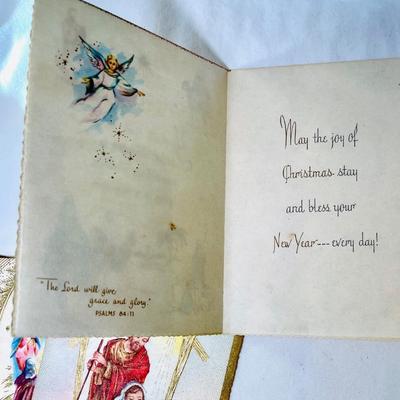 "The Lord will give
grace and glory."
PSALMS 84:11
May the joy of
Christmas stay
and bless your
New Year---every day!